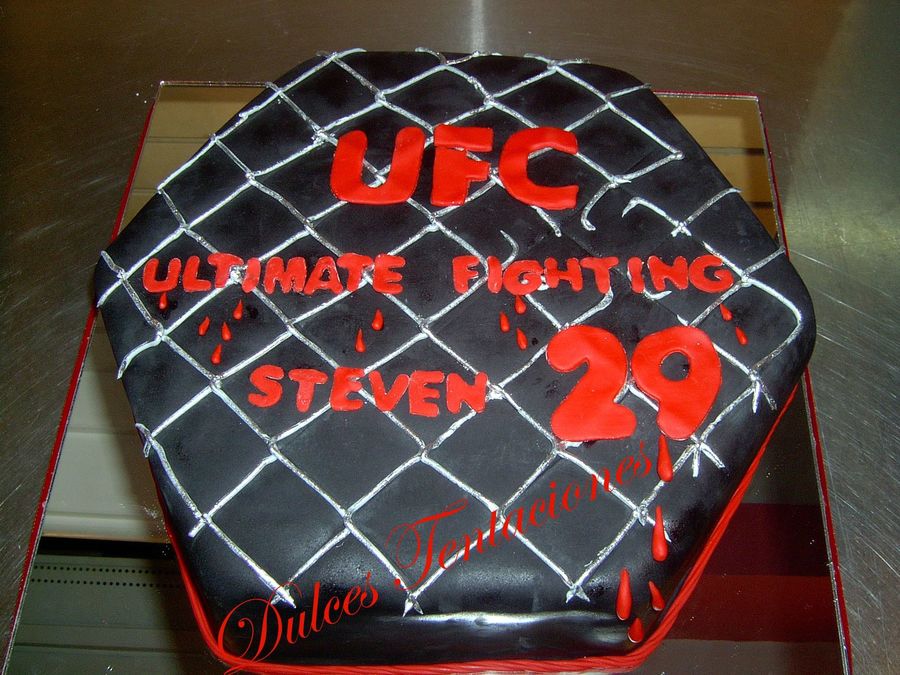 UFC
ULTIMATE FIGHTING
STEVEN 29
Dulces Tentaciones